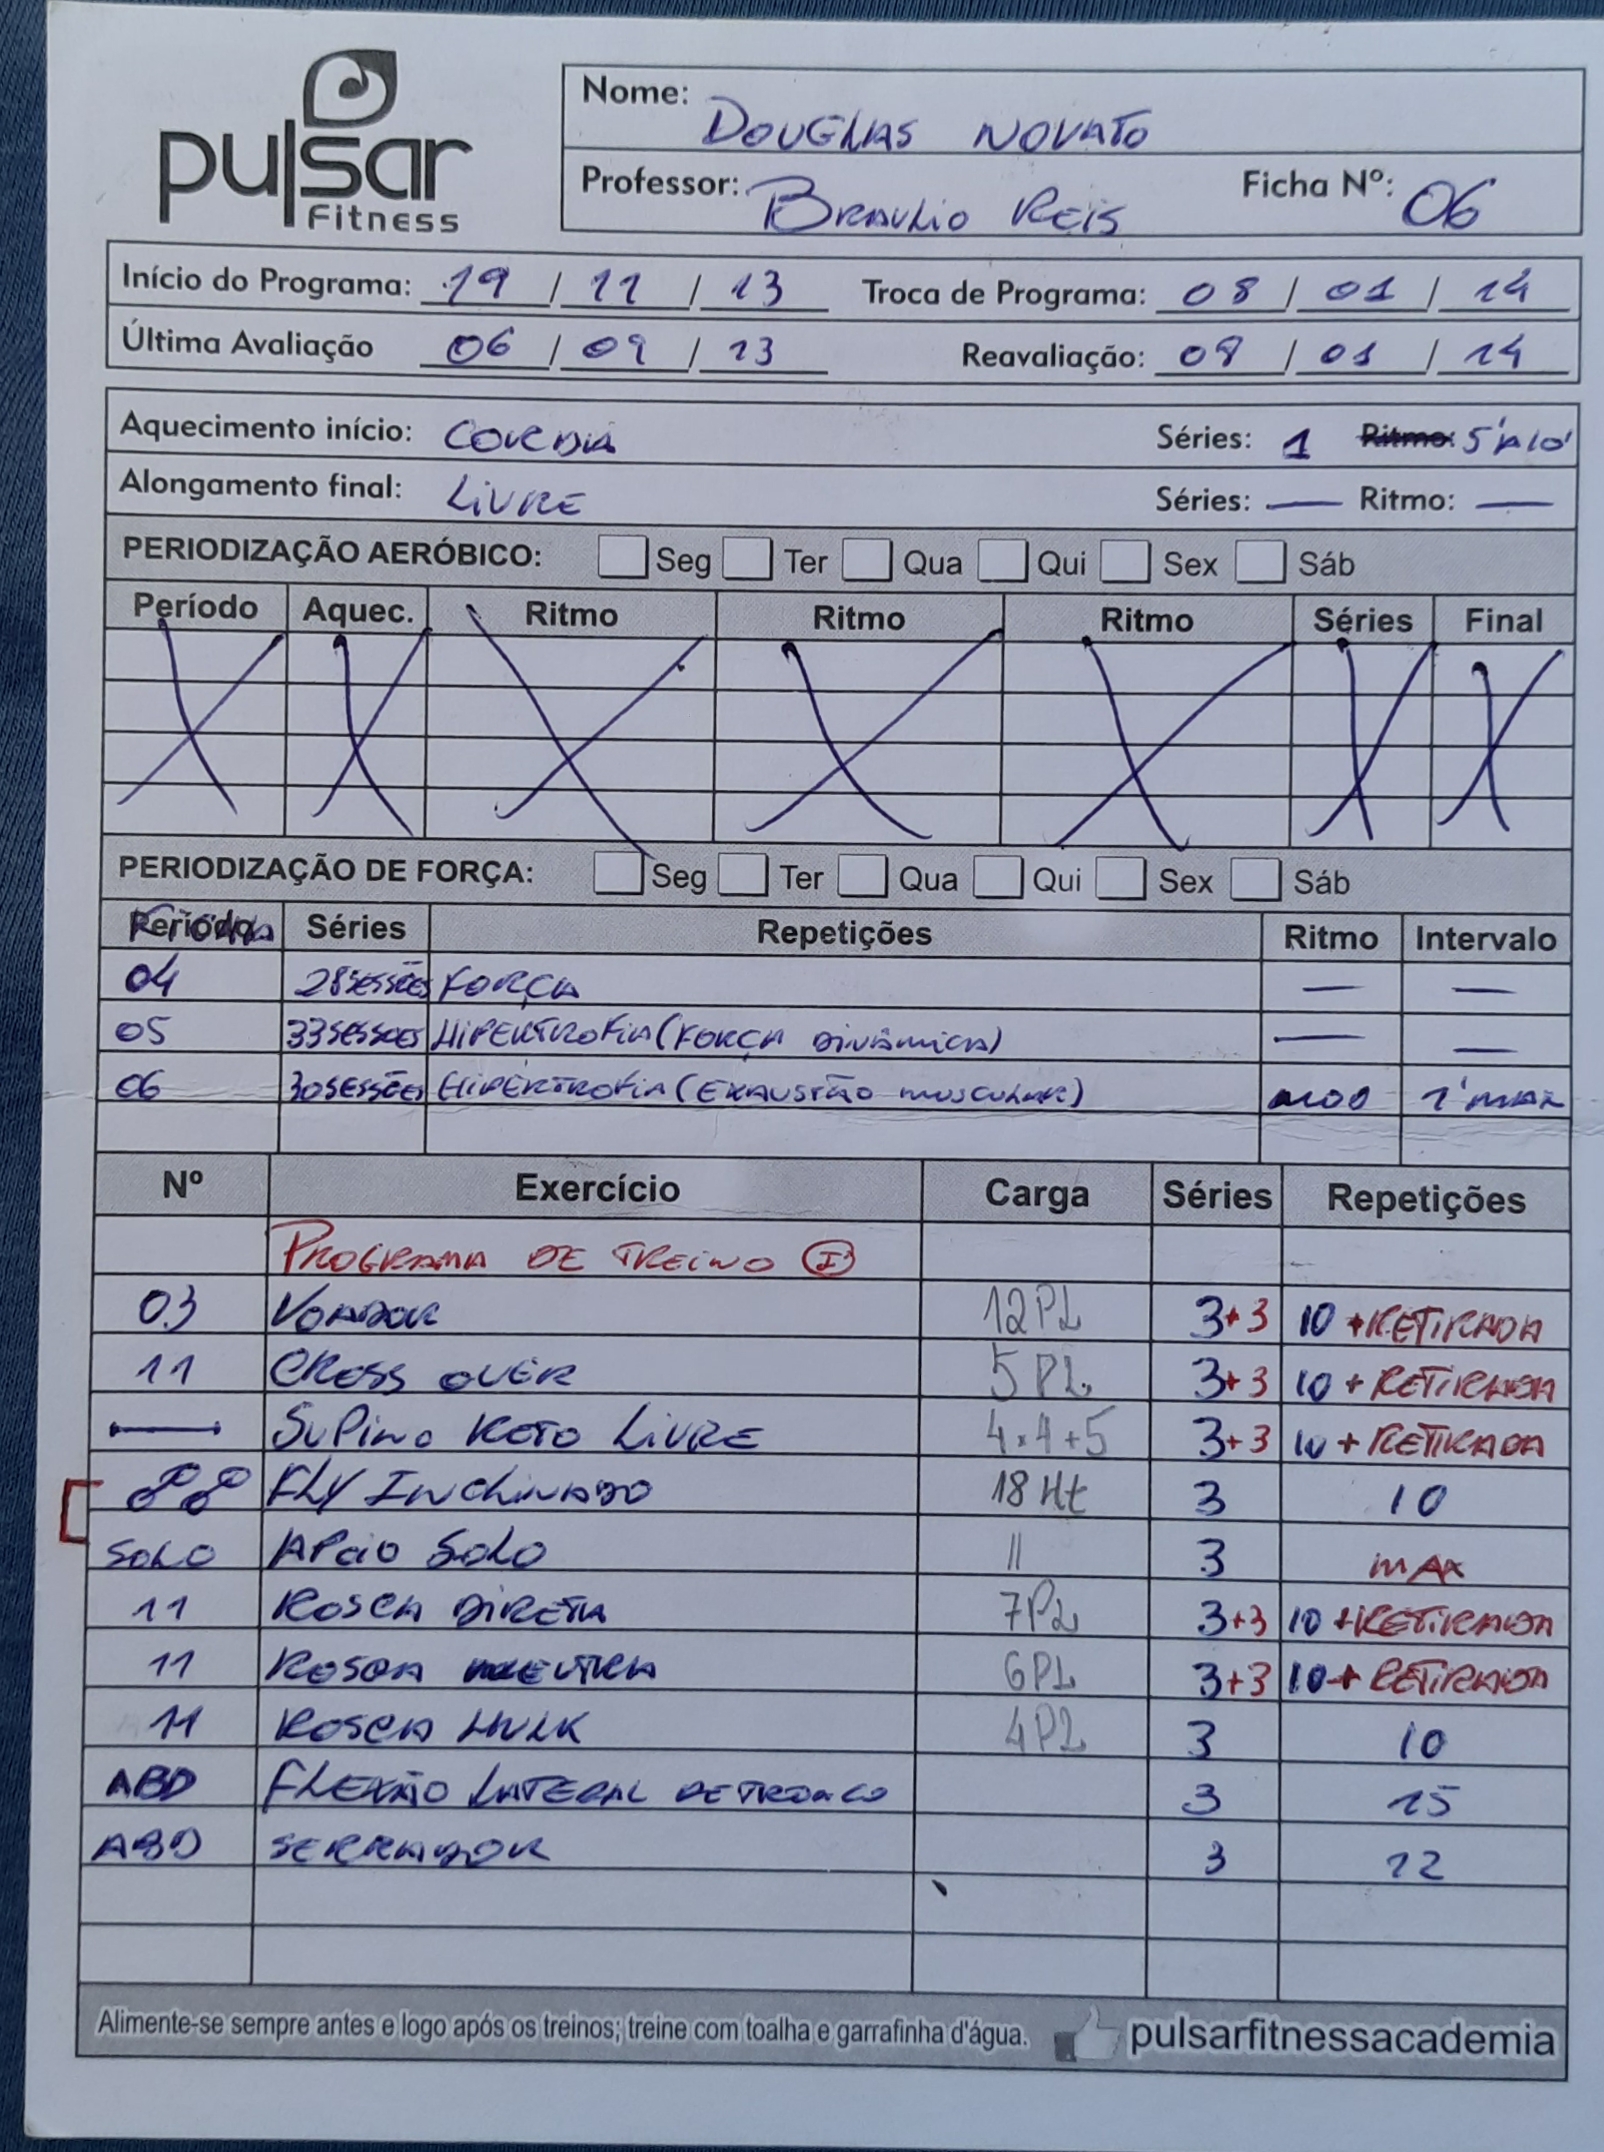 pulsar
Fitness
Nome: DOUGLAS NOVATO
Professor: BRAULIO REIS Ficha Nº: 06
Início do Programa: 19 / 11 / 13 Troca de Programa: 08 / 01 / 14
Última Avaliação 06 / 09 / 13 Reavaliação: 08 / 01 / 14
Aquecimento início: CORDA Séries: 1 Ritmo: 5' A 10'
Alongamento final: LIVRE Séries: — Ritmo: —
PERIODIZAÇÃO AERÓBICO: Seg Ter Qua Qui Sex Sáb
Período Aquec. Ritmo Ritmo Ritmo Séries Final
PERIODIZAÇÃO DE FORÇA: Seg Ter Qua Qui Sex Sáb
Período Séries Repetições Ritmo Intervalo
04 28 SESSÕES FORÇA — —
05 33 SESSOES HIPERTROFIA (FORÇA DINÂMICA) — —
06 30 SESSÕES HIPERTROFIA (EXAUSTÃO MUSCULAR) MOD 1' MAX
Nº Exercício Carga Séries Repetições
PROGRAMA DE TREINO I
03 VOADOR 12PL 3+3 10 + RETIRADA
11 CROSS OVER 5 PL 3+3 10 + RETIRADA
SUPINO RETO LIVRE 4+4+5 3+3 10 + RETIRADA
FLY INCLINADO 18 Ht 3 10
SOLO APOIO SOLO 11 3 MAX
11 ROSCA DIRETA 7PL 3+3 10 + RETIRADA
11 ROSCA NEUTRA 6PL 3+3 10 + RETIRADA
11 ROSCA HULK 4PL 3 10
ABD FLEXÃO LATERAL DE TRONCO 3 15
ABD SERRADOR 3 12
Alimente-se sempre antes e logo após os treinos; treine com toalha e garrafinha d'água. pulsarfitnessacademia